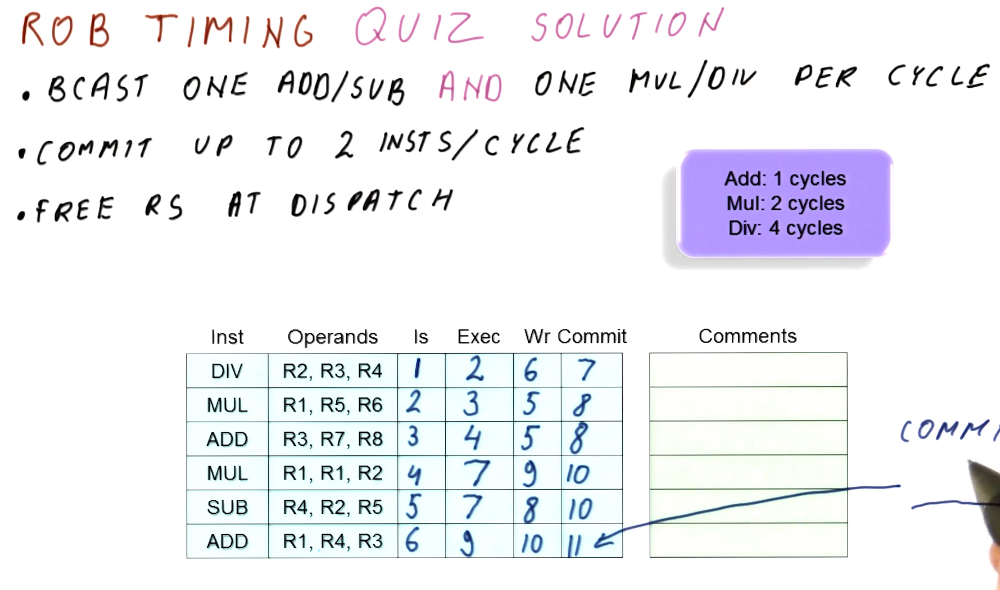 ROB TIMING QUIZ SOLUTION
• BCAST ONE ADD/SUB AND ONE MUL/DIV PER CYCLE
• COMMIT UP TO 2 INSTS/CYCLE
• FREE RS AT DISPATCH
Add: 1 cycles
Mul: 2 cycles
Div: 4 cycles
Inst Operands Is Exec Wr Commit Comments
DIV R2, R3, R4 1 2 6 7
MUL R1, R5, R6 2 3 5 8
ADD R3, R7, R8 3 4 5 8
MUL R1, R1, R2 4 7 9 10
SUB R4, R2, R5 5 7 8 10
ADD R1, R4, R3 6 9 10 11